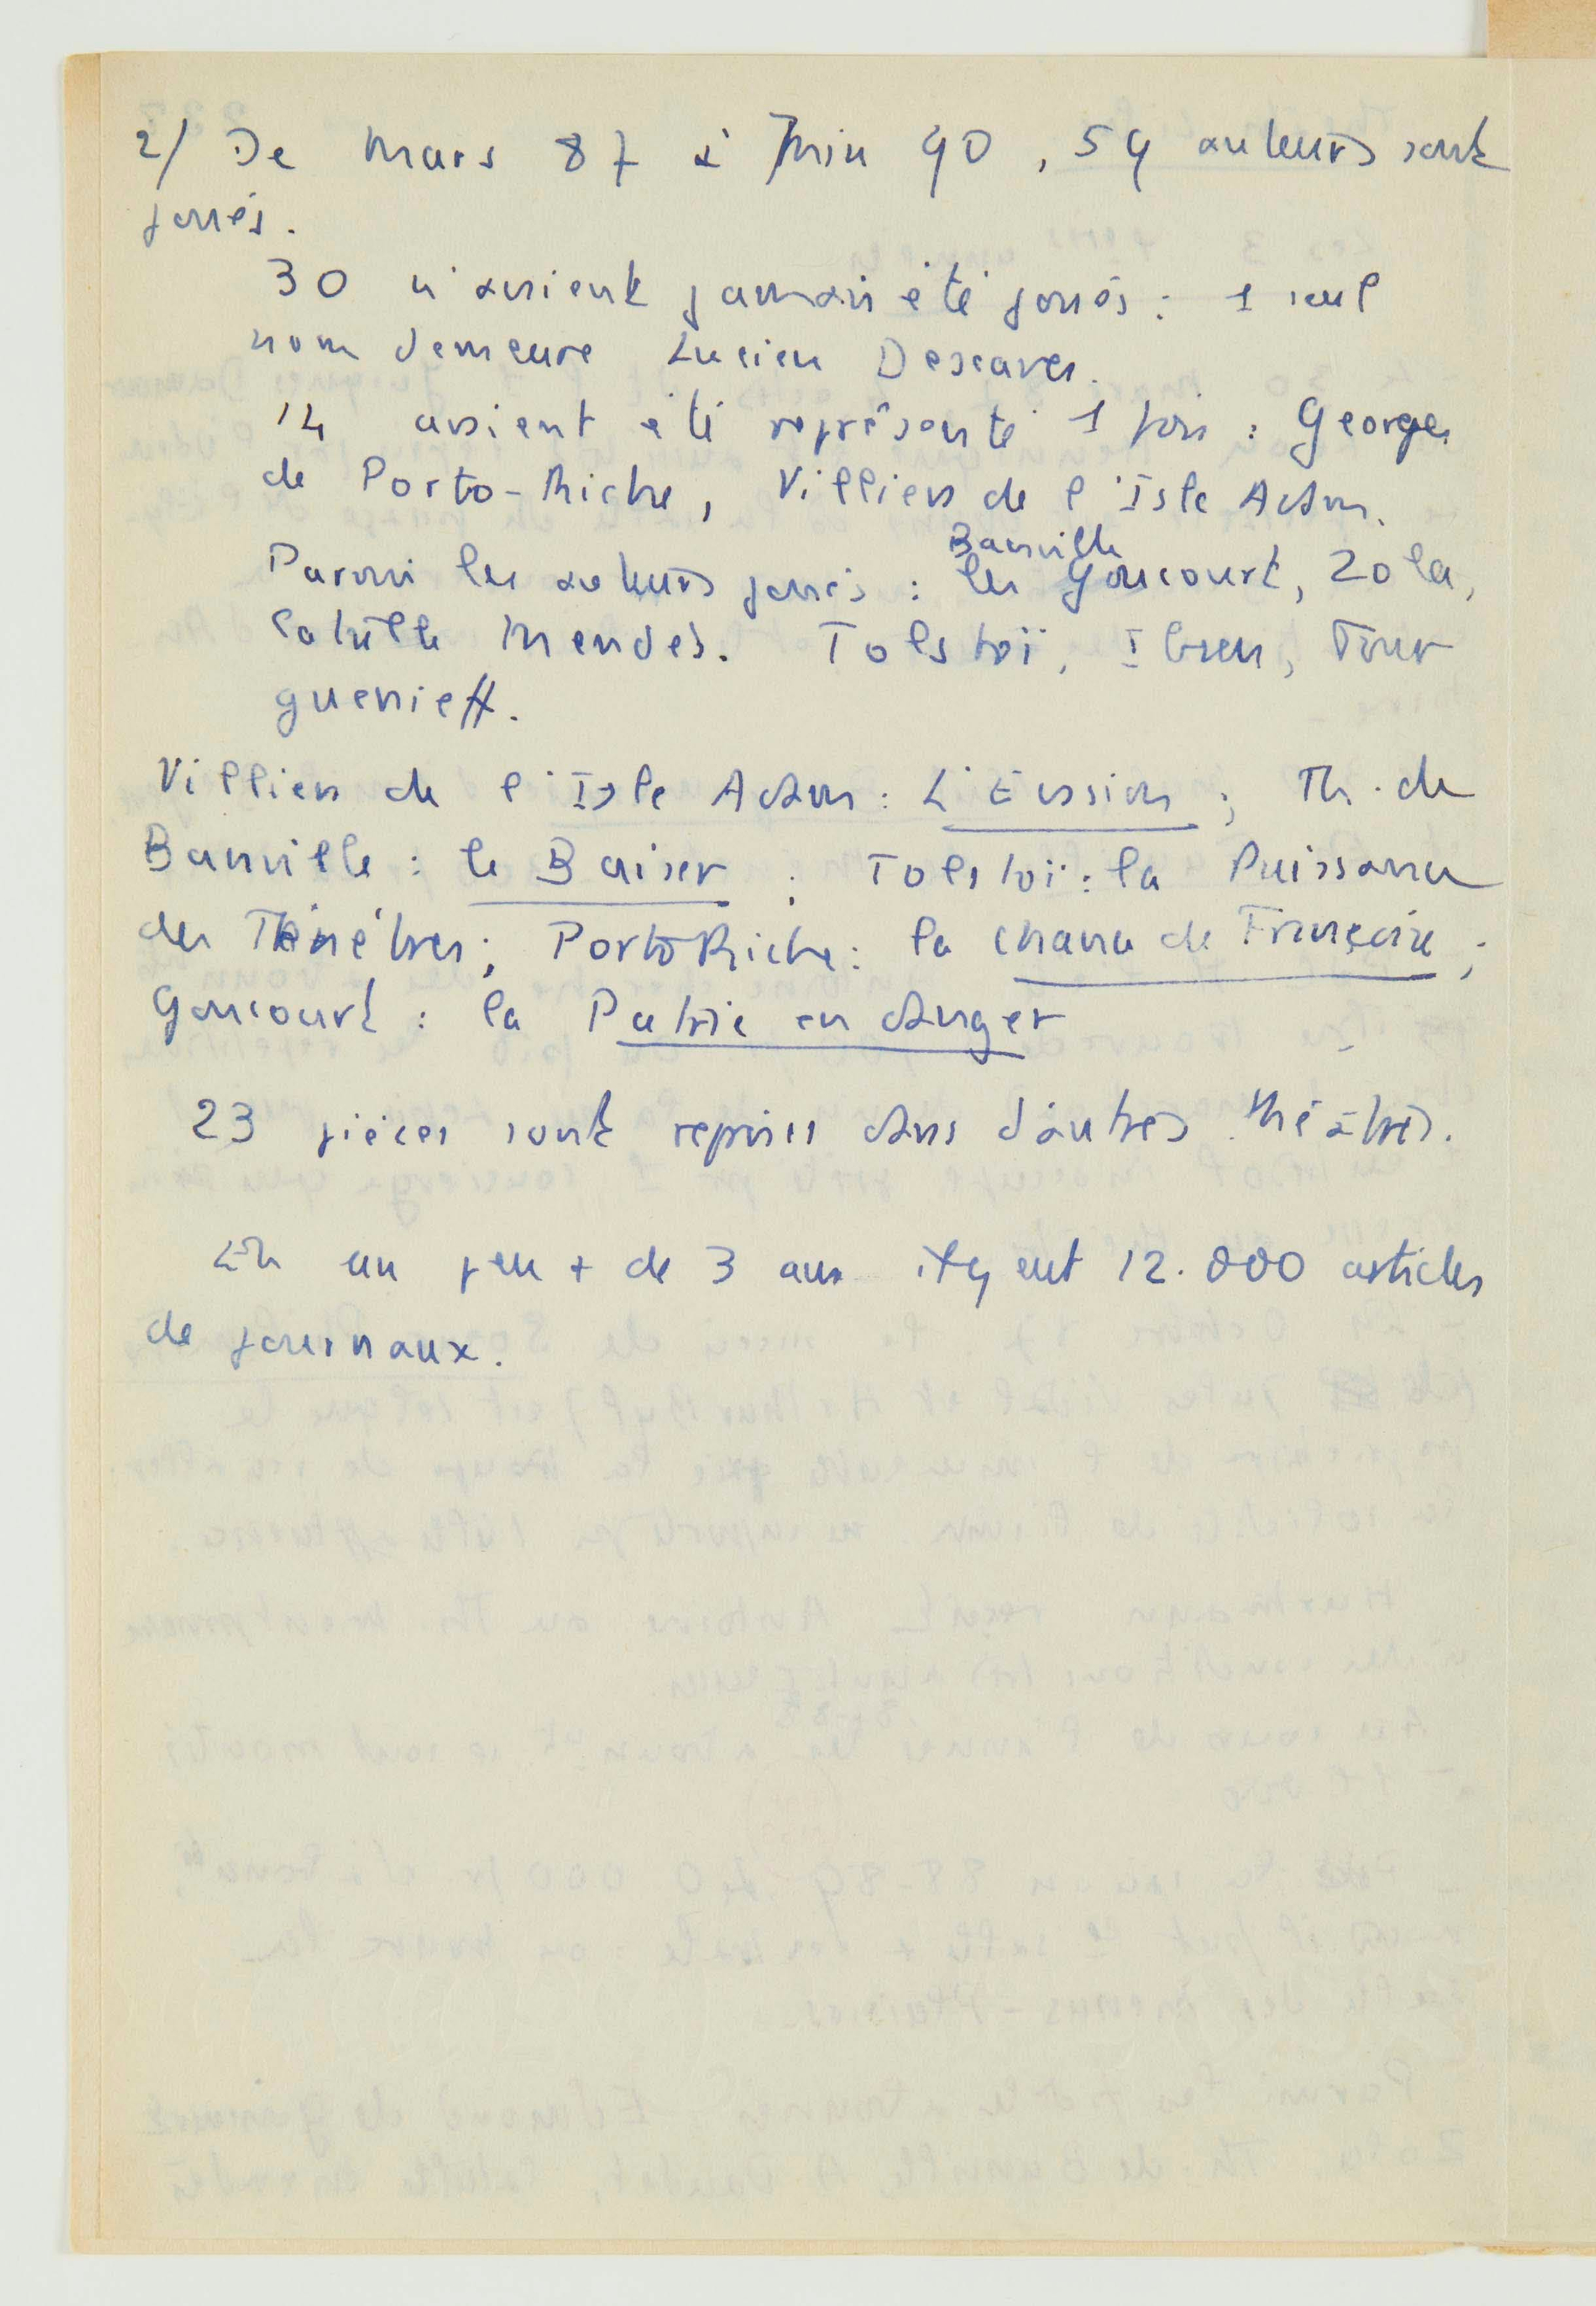 2/ De Mars 87 à Juin 90, 59 auteurs sont
joués.
30 n'avaient jamais été joués : 1 seul
nom demeure Lucien Descaves.
14 avaient été représenté 1 fois : Georges
de Porto-Riche, Villiers de l'Isle Adam.
Banville
Parmi les auteurs joués : les Goncourt, Zola,
Catulle Mendès. Tolstoï, Ibsen, Tour
guenieff.
Villiers de l'Isle Adam : L'Evasion ; Th. de
Banville : le Baiser ; Tolstoï : la Puissance
des Ténébres ; Porto Riche : la chance de Françoise ;
Goncourt : la Patrie en danger
23 pièces sont reprises dans d'autres théâtres.
En un peu + de 3 ans il y eut 12.000 articles
de journaux.